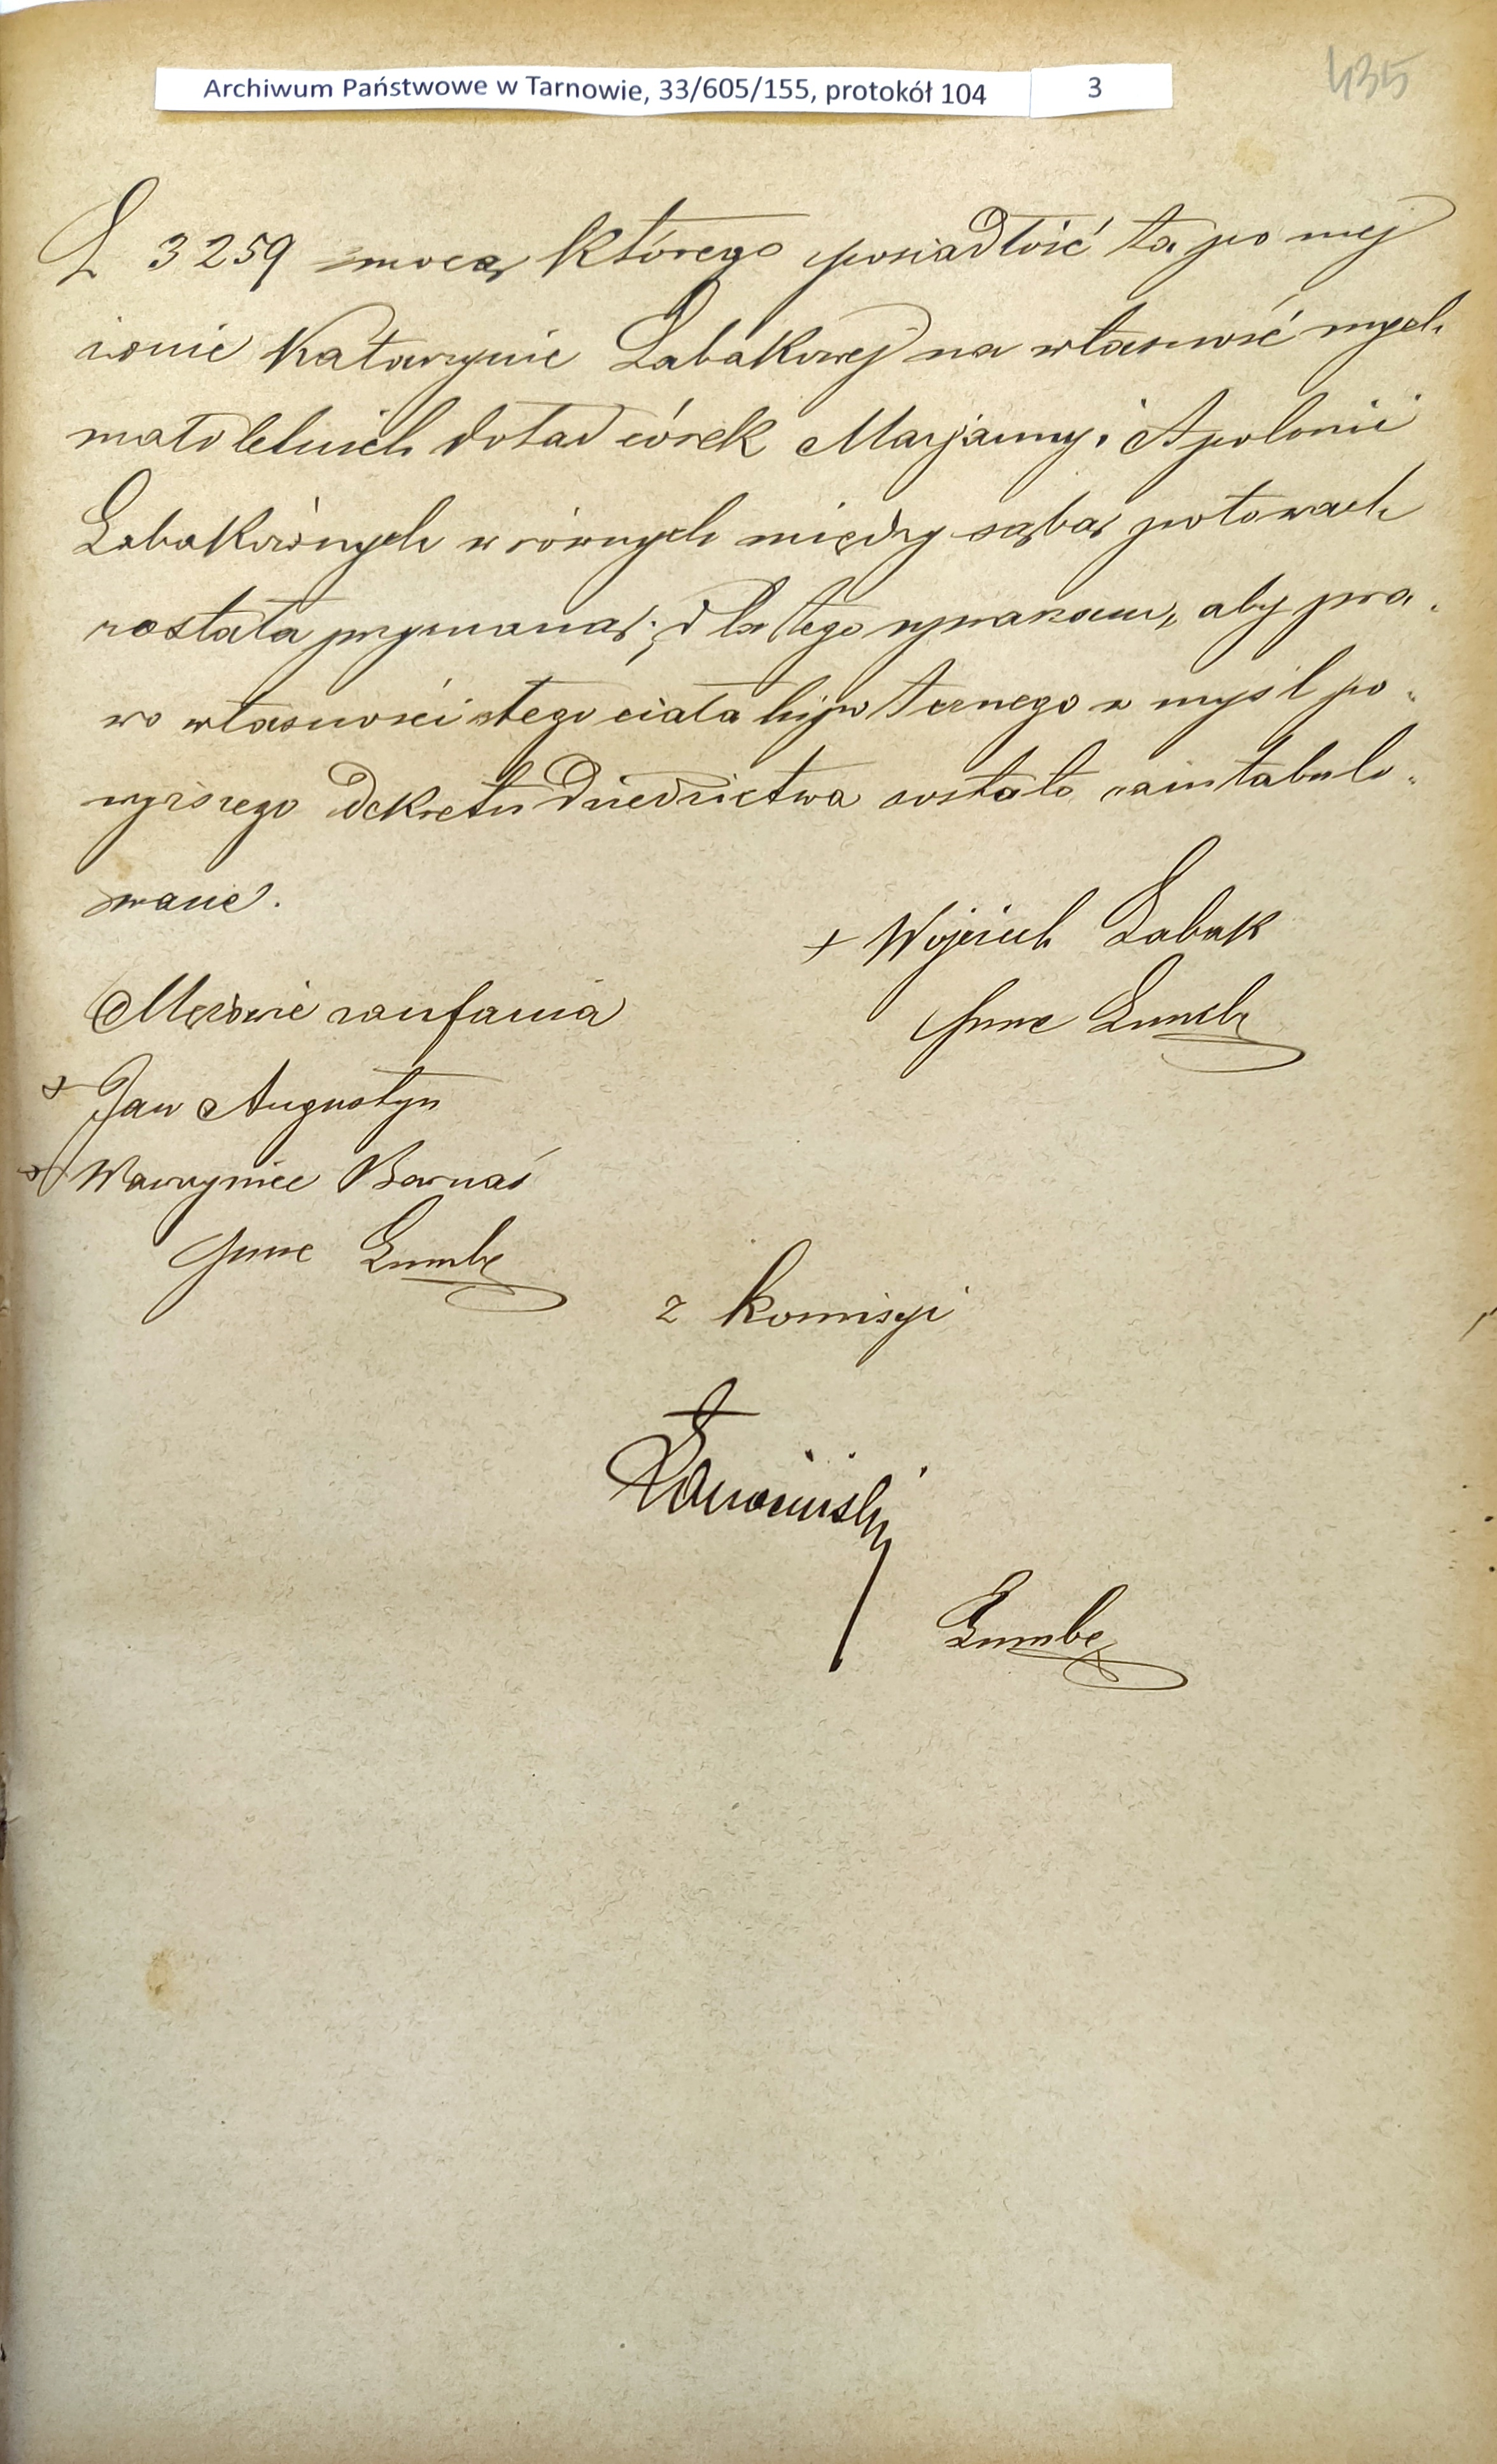 Archiwum Państwowe w Tarnowie, 33/605/155, protokół 104 3
435
L 3259 mocą którego posiadłość ta po mej
żonie Katarzynie Łabakowej na własność mych
małoletnich dotąd córek Marjanny i Apolonii
Łabakównych w równych między sobą połowach
została przyznaną; dla tego upraszam, aby pra-
wo własności tego ciała hypotecznego w myśl po-
wyższego dekretu dziedzictwa zostało zaintabulo-
wane.
+ Wojciech Łabak
Mężowie zaufania
+ Jan Augustyn
+ Wawrzyniec Barnaś
z komisyi